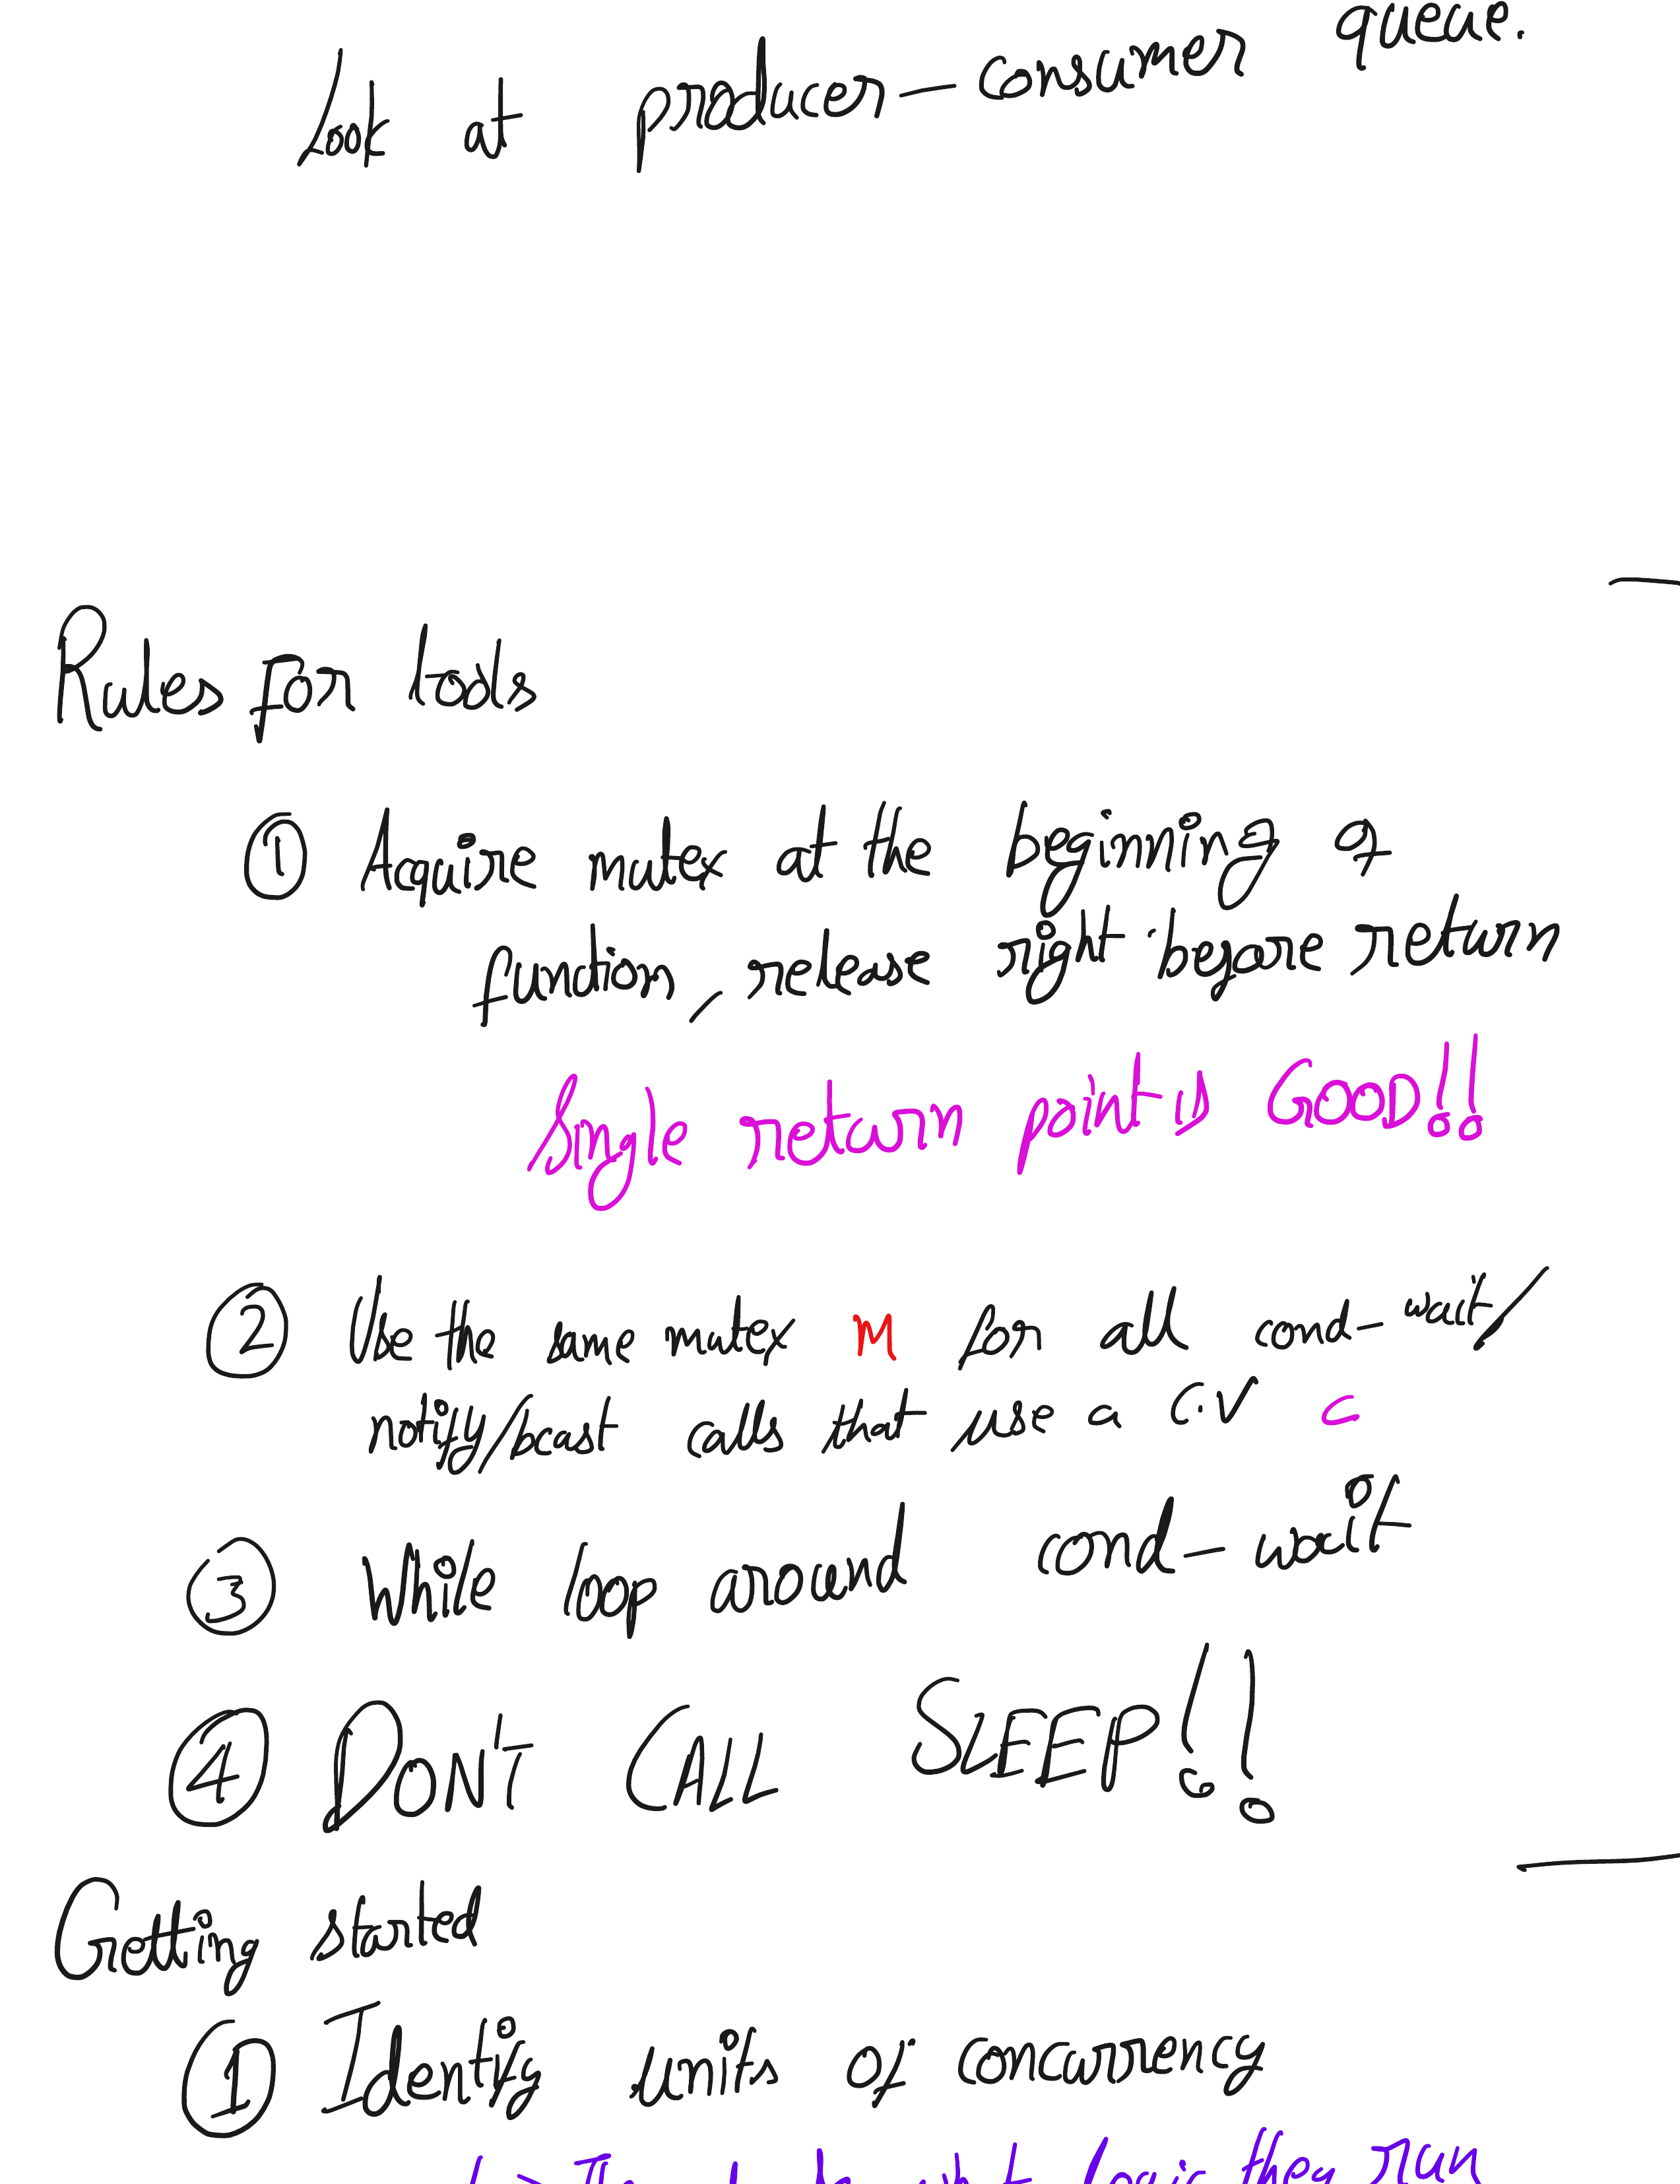 Look at producer-consumer queue.
Rules for tools
① Acquire mutex at the beginning of
function, release right before return
Single return point is GOOD!!
② Use the same mutex M for all cond-wait/
notify/bcast calls that use a C.V C
③ While loop around cond-wait
④ DON'T CALL SLEEP!!
Getting started
① Identify units of concurrency
logic they run